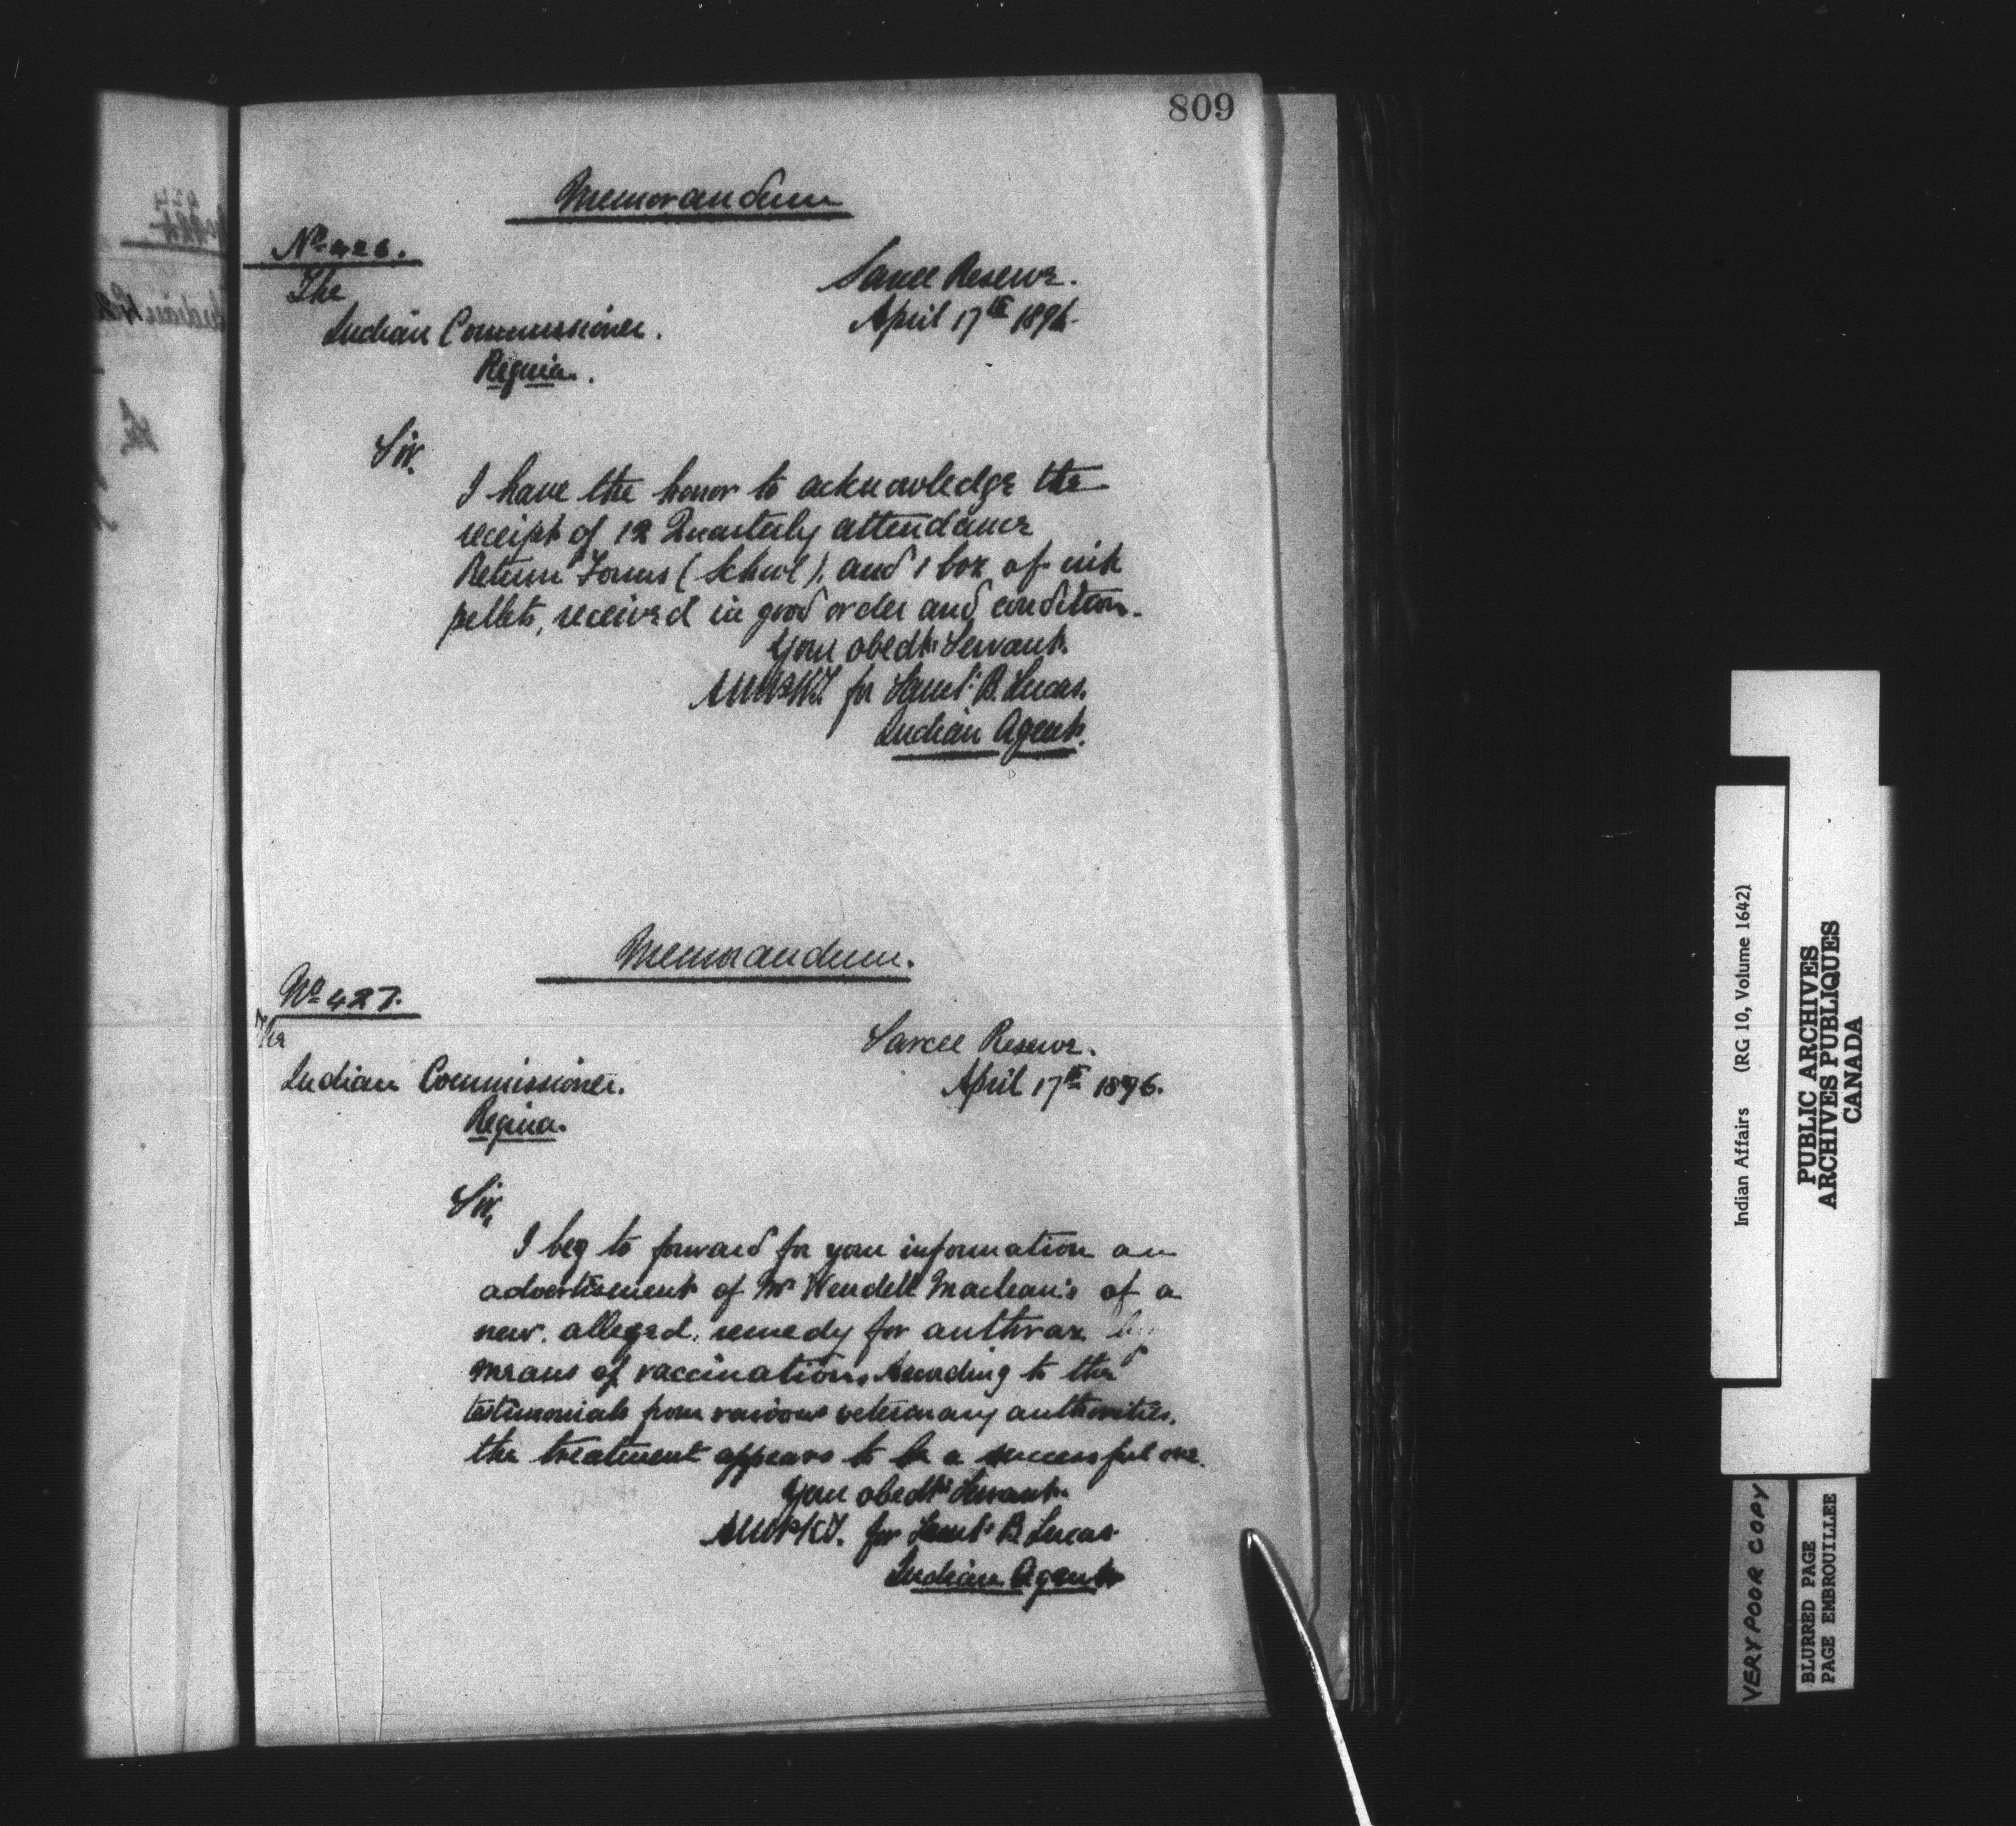 809
Memorandum
No 426.
The
Sarcee Reserve.
Indian Commissioner.
April 17th 1896.
Regina.
Sir.
I have the honor to acknowledge the
receipt of 12 Quarterly attendance
Return Forms (School), and 1 box of ink
pellets, received in good order and condition.
Your obedt. Servant.
for Saml. B. Lucas.
Indian Agent.
Memorandum.
No 427.
The
Sarcee Reserve.
Indian Commissioner.
April 17th 1896.
Regina.
Sir,
I beg to forward for your information an
advertisement of Mr Wendell Maclean's of a
new. alleged. remedy for anthrax by
means of vaccination. According to the
testimonials from various veterinary authorities,
the treatment appears to be a successful one.
Your obedt. Servant.
for Saml. B. Lucas
Indian Agent
Indian Affairs (RG 10, Volume 1642)
PUBLIC ARCHIVES
ARCHIVES PUBLIQUES
CANADA
VERY POOR COPY
BLURRED PAGE
PAGE EMBROUILLEE